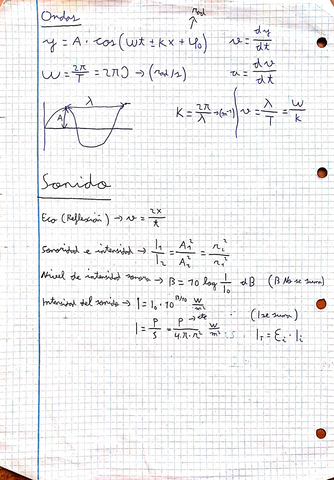 Ondas
rad
y = A · cos(wt ± kx + φ₀)   v = dy/dt
W = 2π/T = 2πf → (rad/s)   a = dv/dt
λ
A
K = 2π/λ → (m⁻¹)   v = λ/T = w/k
Sonido
Eco (Reflexión) → v = 2x/t
Sonoridad e intensidad → I₁/I₂ = A₁²/A₂² = r₂²/r₁²
Nivel de intensidad sonora → B = 10 log I/I₀ dB (B No se suma)
Intensidad del sonido → I = I₀ · 10^(B/10) W/m²   (I se suma)
I = P/S = P/4·π·r² W/m²   I_T = Σᵢ · Iᵢ
→ cte